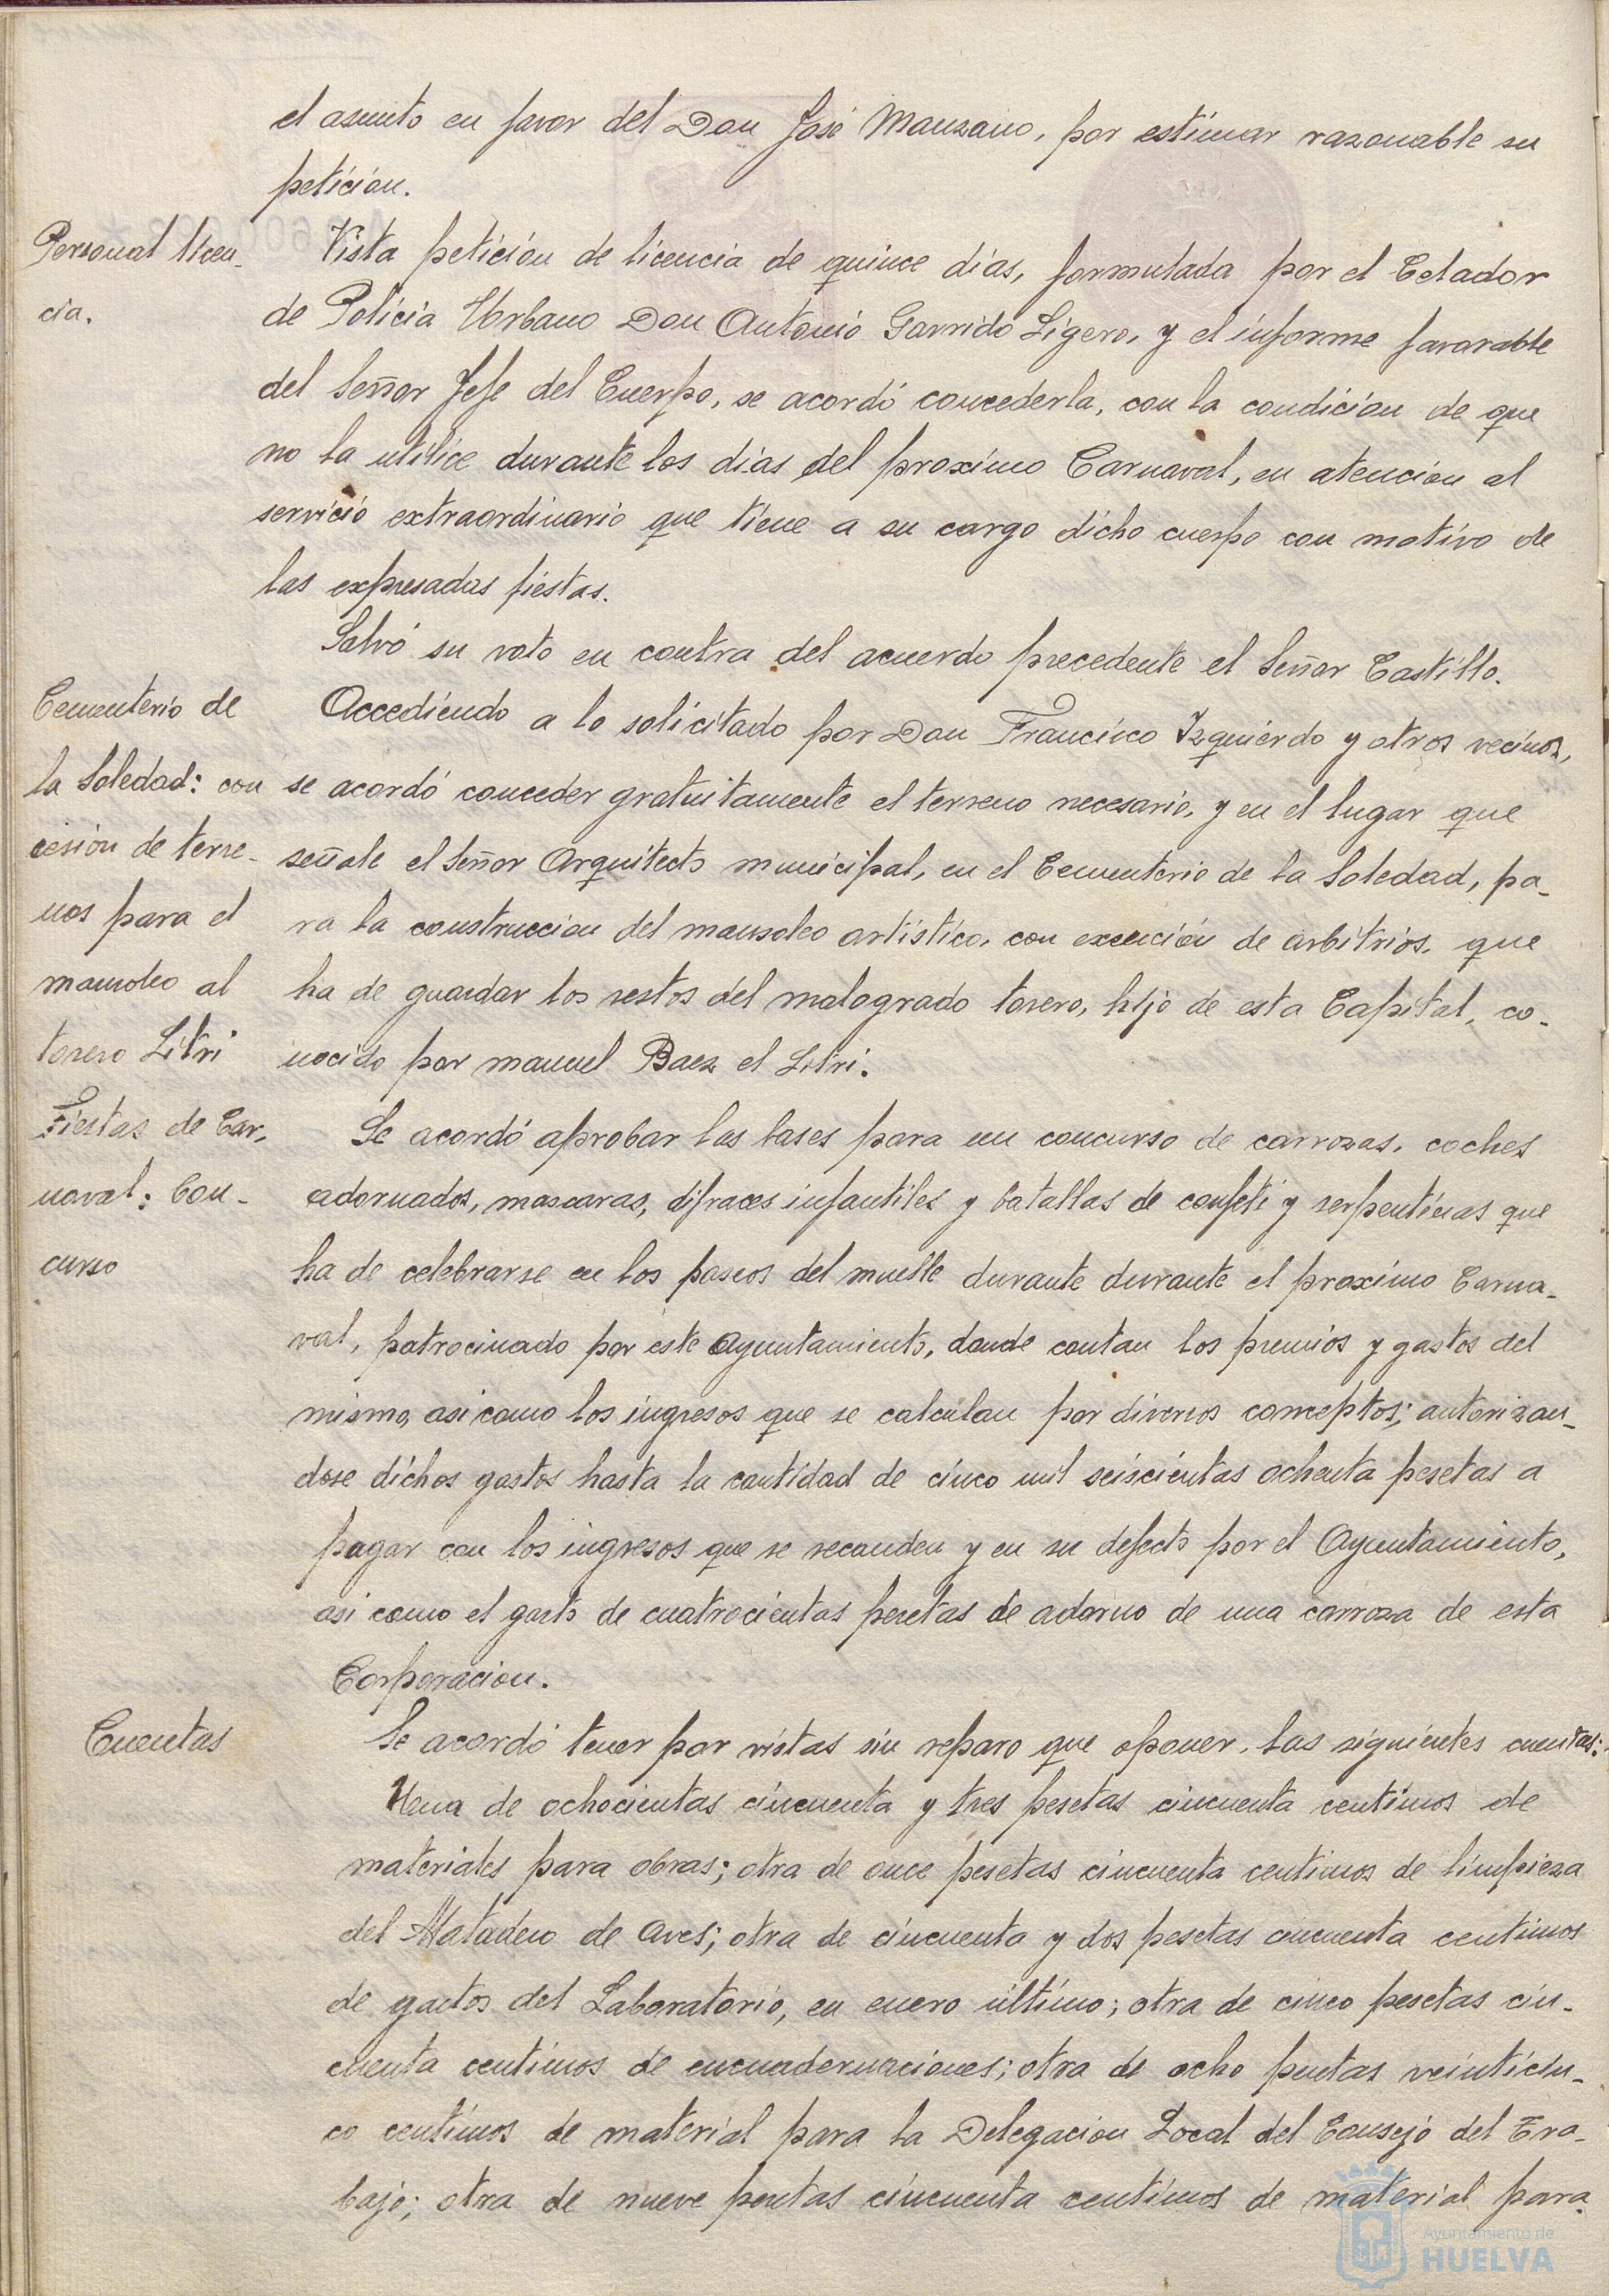 el asunto en favor del Don José Manzano, por estimar razonable su
peticion.
Personal licen-
cia.
Vista petición de licencia de quince dias, formulada por el Celador
de Policia Urbano Don Antonio Garrido Ligero, y el informe favorable
del Señor Jefe del Cuerpo, se acordó concederla, con la condicion de que
no la utilice durante los dias del proximo Carnaval, en atencion al
servicio extraordinario que tiene a su cargo dicho cuerpo con motivo de
las expresadas fiestas.
Salvó su voto en contra del acuerdo precedente el Señor Castillo.
Cementerio de
la Soledad: con
cesion de terre-
nos para el
mausoleo al
torero Litri
Accediendo a lo solicitado por Don Francisco Izquierdo y otros vecinos,
se acordó conceder gratuitamente el terreno necesario, y en el lugar que
señale el Señor Arquitecto municipal, en el Cementerio de la Soledad, pa-
ra la construccion del mausoleo artistico, con exención de arbitrios, que
ha de guardar los restos del malogrado torero, hijo de esta Capital, co-
nocido por manuel Baez el Litri.
Fiestas de Car-
naval: Con-
curso
Se acordó aprobar las bases para un concurso de carrozas, coches
adornados, mascaras, difraces infantiles y batallas de confeti y serpentinas que
ha de celebrarse en los paseos del muelle durante durante el proximo Carna-
val, patrocinado por este Ayuntamiento, donde contan los premios y gastos del
mismo, asi como los ingresos que se calculan por diversos conceptos; autorizan-
dose dichos gastos hasta la cantidad de cinco mil seiscientas ochenta pesetas a
pagar con los ingresos que se recauden y en su defecto por el Ayuntamiento,
asi como el gasto de cuatrocientas pesetas de adorno de una carroza de esta
Corporacion.
Cuentas
Se acordó tener por vistas sin reparo que oponer, las siguientes cuentas:
Una de ochocientas cincuenta y tres pesetas cincuenta centimos de
materiales para obras; otra de once pesetas cincuenta centimos de limpieza
del Matadero de Aves; otra de cincuenta y dos pesetas cincuenta centimos
de gastos del Laboratorio, en enero último; otra de cinco pesetas cin-
cuenta centimos de encuadernaciones; otra de ocho pesetas veinticin-
co centimos de material para la Delegacion Local del Consejo del Tra-
bajo; otra de nueve pesetas cincuenta centimos de material para
Ayuntamiento de
HUELVA